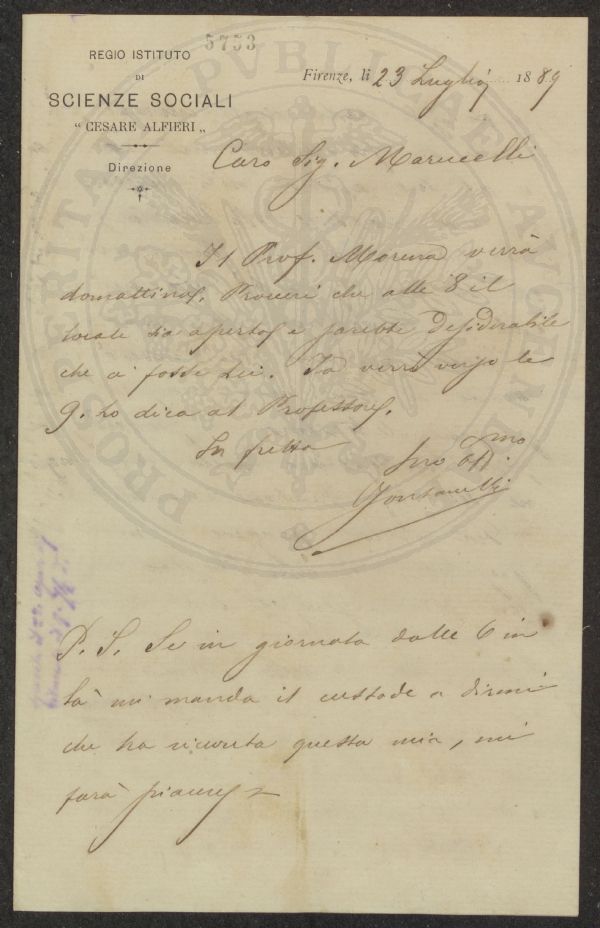 5753
REGIO ISTITUTO
DI
SCIENZE SOCIALI
" CESARE ALFIERI „
Direzione
Firenze, lì 23 Luglio 1889
Caro Sig. Marucelli
Il Prof. Morena verrà
domattina. Procuri che alle 8 il
locale sia aperto e sarebbe desiderabile
che ci fosse Lei. Io verrò verso le
9. Lo dica al Professore.
In fretta
Suo Aff.mo
Fontanelli
P. S. Se in giornata dalle 6 in
là mi manda il custode a dirmi
che ha ricevuta questa mia, mi
farà piacere
PROSPERITATI PVBLICAE AVGENDAE